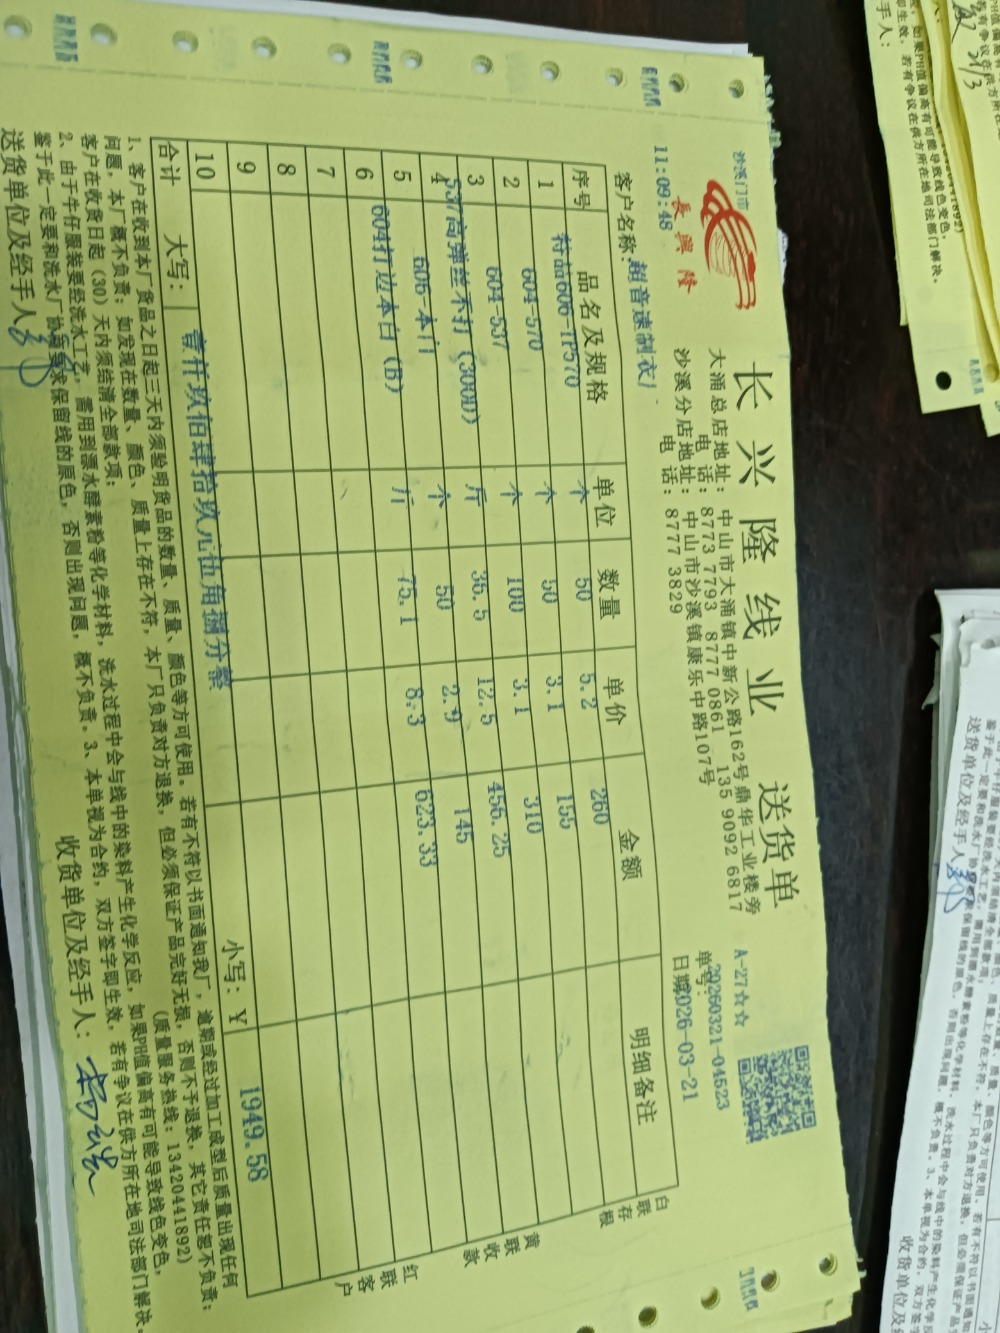 长兴隆线业 送货单
沙溪门市
長興隆
大涌总店地址：中山市大涌镇中新公路162号鼎华工业楼旁
电话：8773 7793 8777 0861 135 9092 6817
沙溪分店地址：中山市沙溪镇康乐中路107号
电话：8777 3829
A-27☆☆
单号：20260321-04523
日期：2026-03-21
11:09:48
客户名称：超音速制衣厂
序号 品名及规格 单位 数量 单价 金额 明细备注
1 特品606-TP570 个 50 5.2 260
2 604-570 个 50 3.1 155
3 604-537 个 100 3.1 310
4 537高弹丝不打（300D） 斤 36.5 12.5 456.25
5 606-本白 个 50 2.9 145
6 604打边本白（B） 斤 75.1 8.3 623.33
7
8
9
10
合计 大写：壹仟玖佰肆拾玖元伍角捌分整 小写：￥ 1949.58
白联存根
黄联收款
红联客户
1、客户在收到本厂货品之日起三天内须验明货品的数量、质量、颜色等方可使用。若有不符以书面通知我厂，逾期或经过加工成型后质量出现任何
问题，本厂概不负责：如发现在数量、颜色、质量上存在不符，本厂只负责对方退换，但必须保证产品完好无损，否则不予退换，其它责任恕不负责；
客户在收货日起（30）天内须结清全部款项； （质量服务热线：13420441892）
2、由于牛仔服装要经洗水工艺，需用到漂水酵素粉等化学材料，洗水过程中会与线中的染料产生化学反应，如果PH值偏高有可能导致线色变色，
鉴于此一定要和洗水厂协商要求保留线的原色，否则出现问题，概不负责。3、本单视为合约，双方签字即生效，若有争议在供方所在地司法部门解决。
送货单位及经手人： 收货单位及经手人：
如果PH值偏高有可能导致线色变色，
即生效，若有争议在供方所在地司法部门解决。
手人：
21/3
送货单位及经手人
收货单位及经